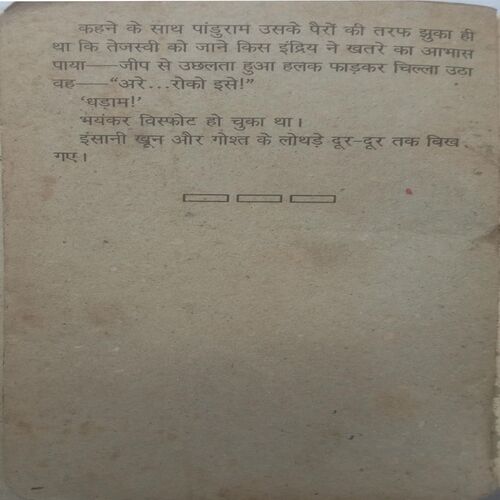 कहने के साथ पांडुराम उसके पैरों की तरफ झुका ही
था कि तेजस्वी को जाने किस इंद्रिय ने खतरे का आभास
पाया——जीप से उछलता हुआ हलक फाड़कर चिल्ला उठा
वह——“अरे...रोको इसे!”
‘धड़ाम!’
भयंकर विस्फोट हो चुका था।
इंसानी खून और गोश्त के लोथड़े दूर-दूर तक बिख
गए।